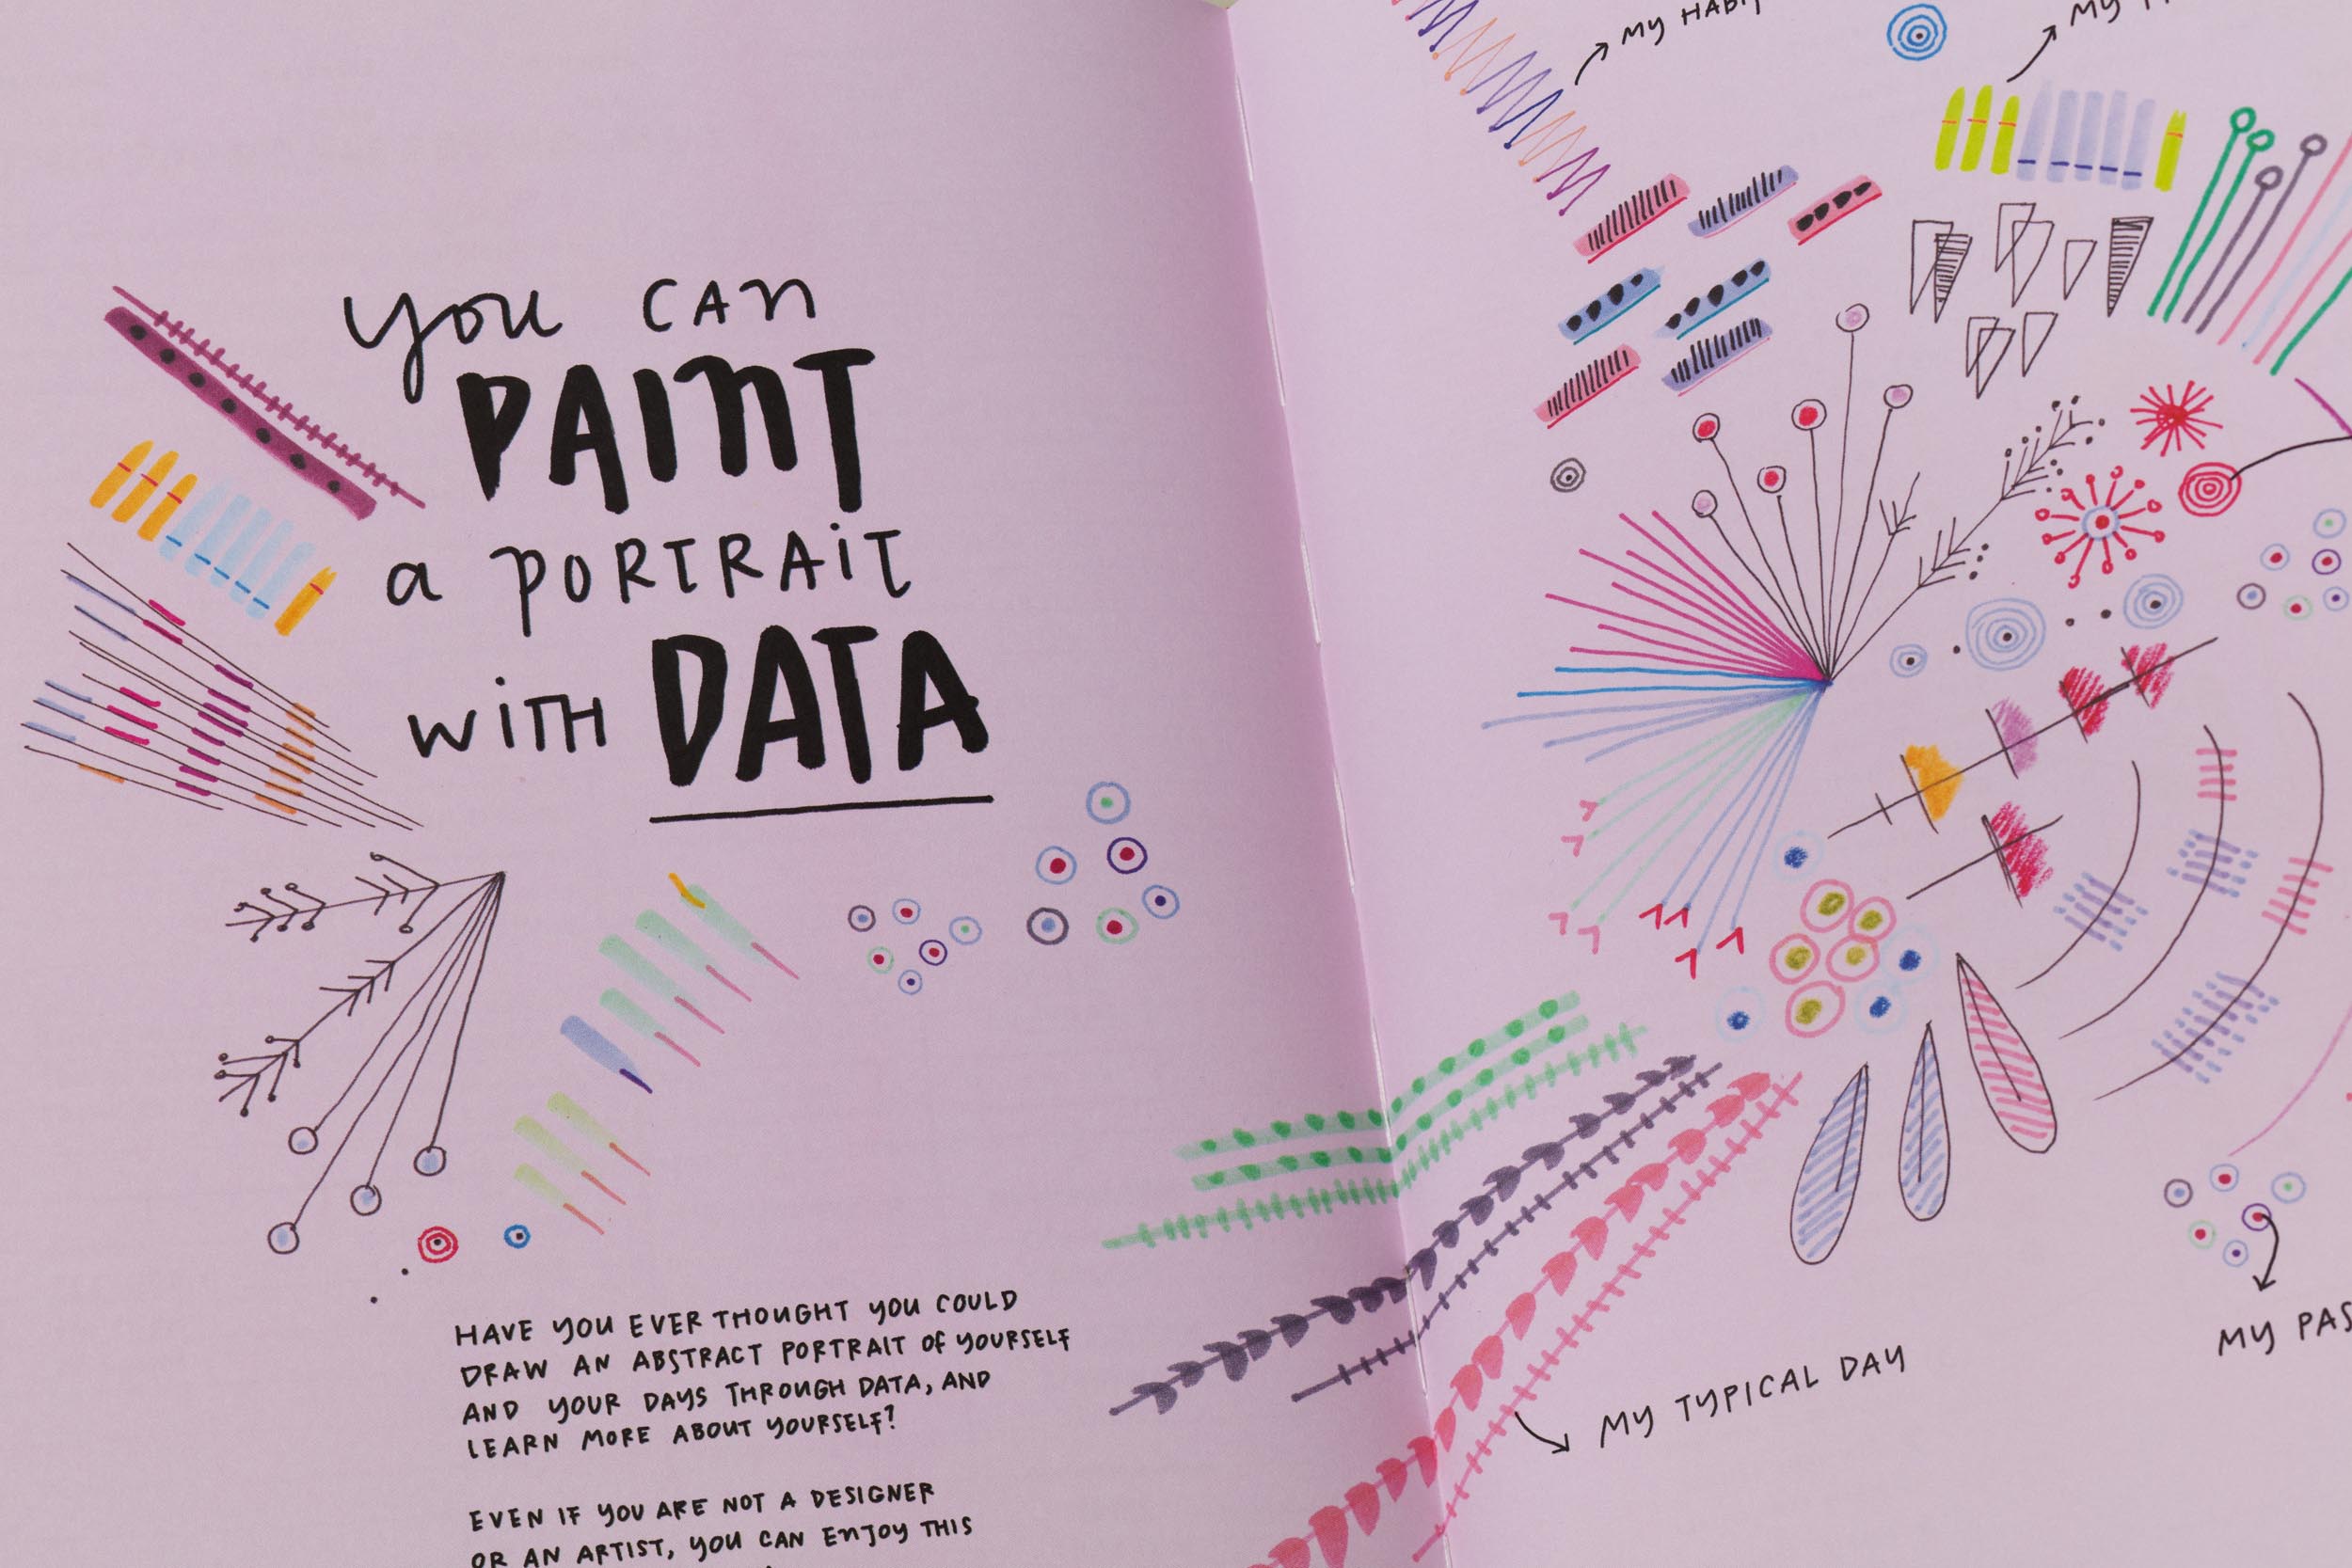 you can
PAINT
a PORTRAiT
wiTH DATA
HAVE YOU EVER THOUGHT YOU COULD
DRAW AN ABSTRACT PORTRAIT OF YOURSELF
AND YOUR DAYS THROUGH DATA, AND
LEARN MORE ABOUT YOURSELF?
EVEN IF YOU ARE NOT A DESIGNER
OR AN ARTIST, YOU CAN ENJOY THIS
MY
MY
MY TYPICAL DAY
MY